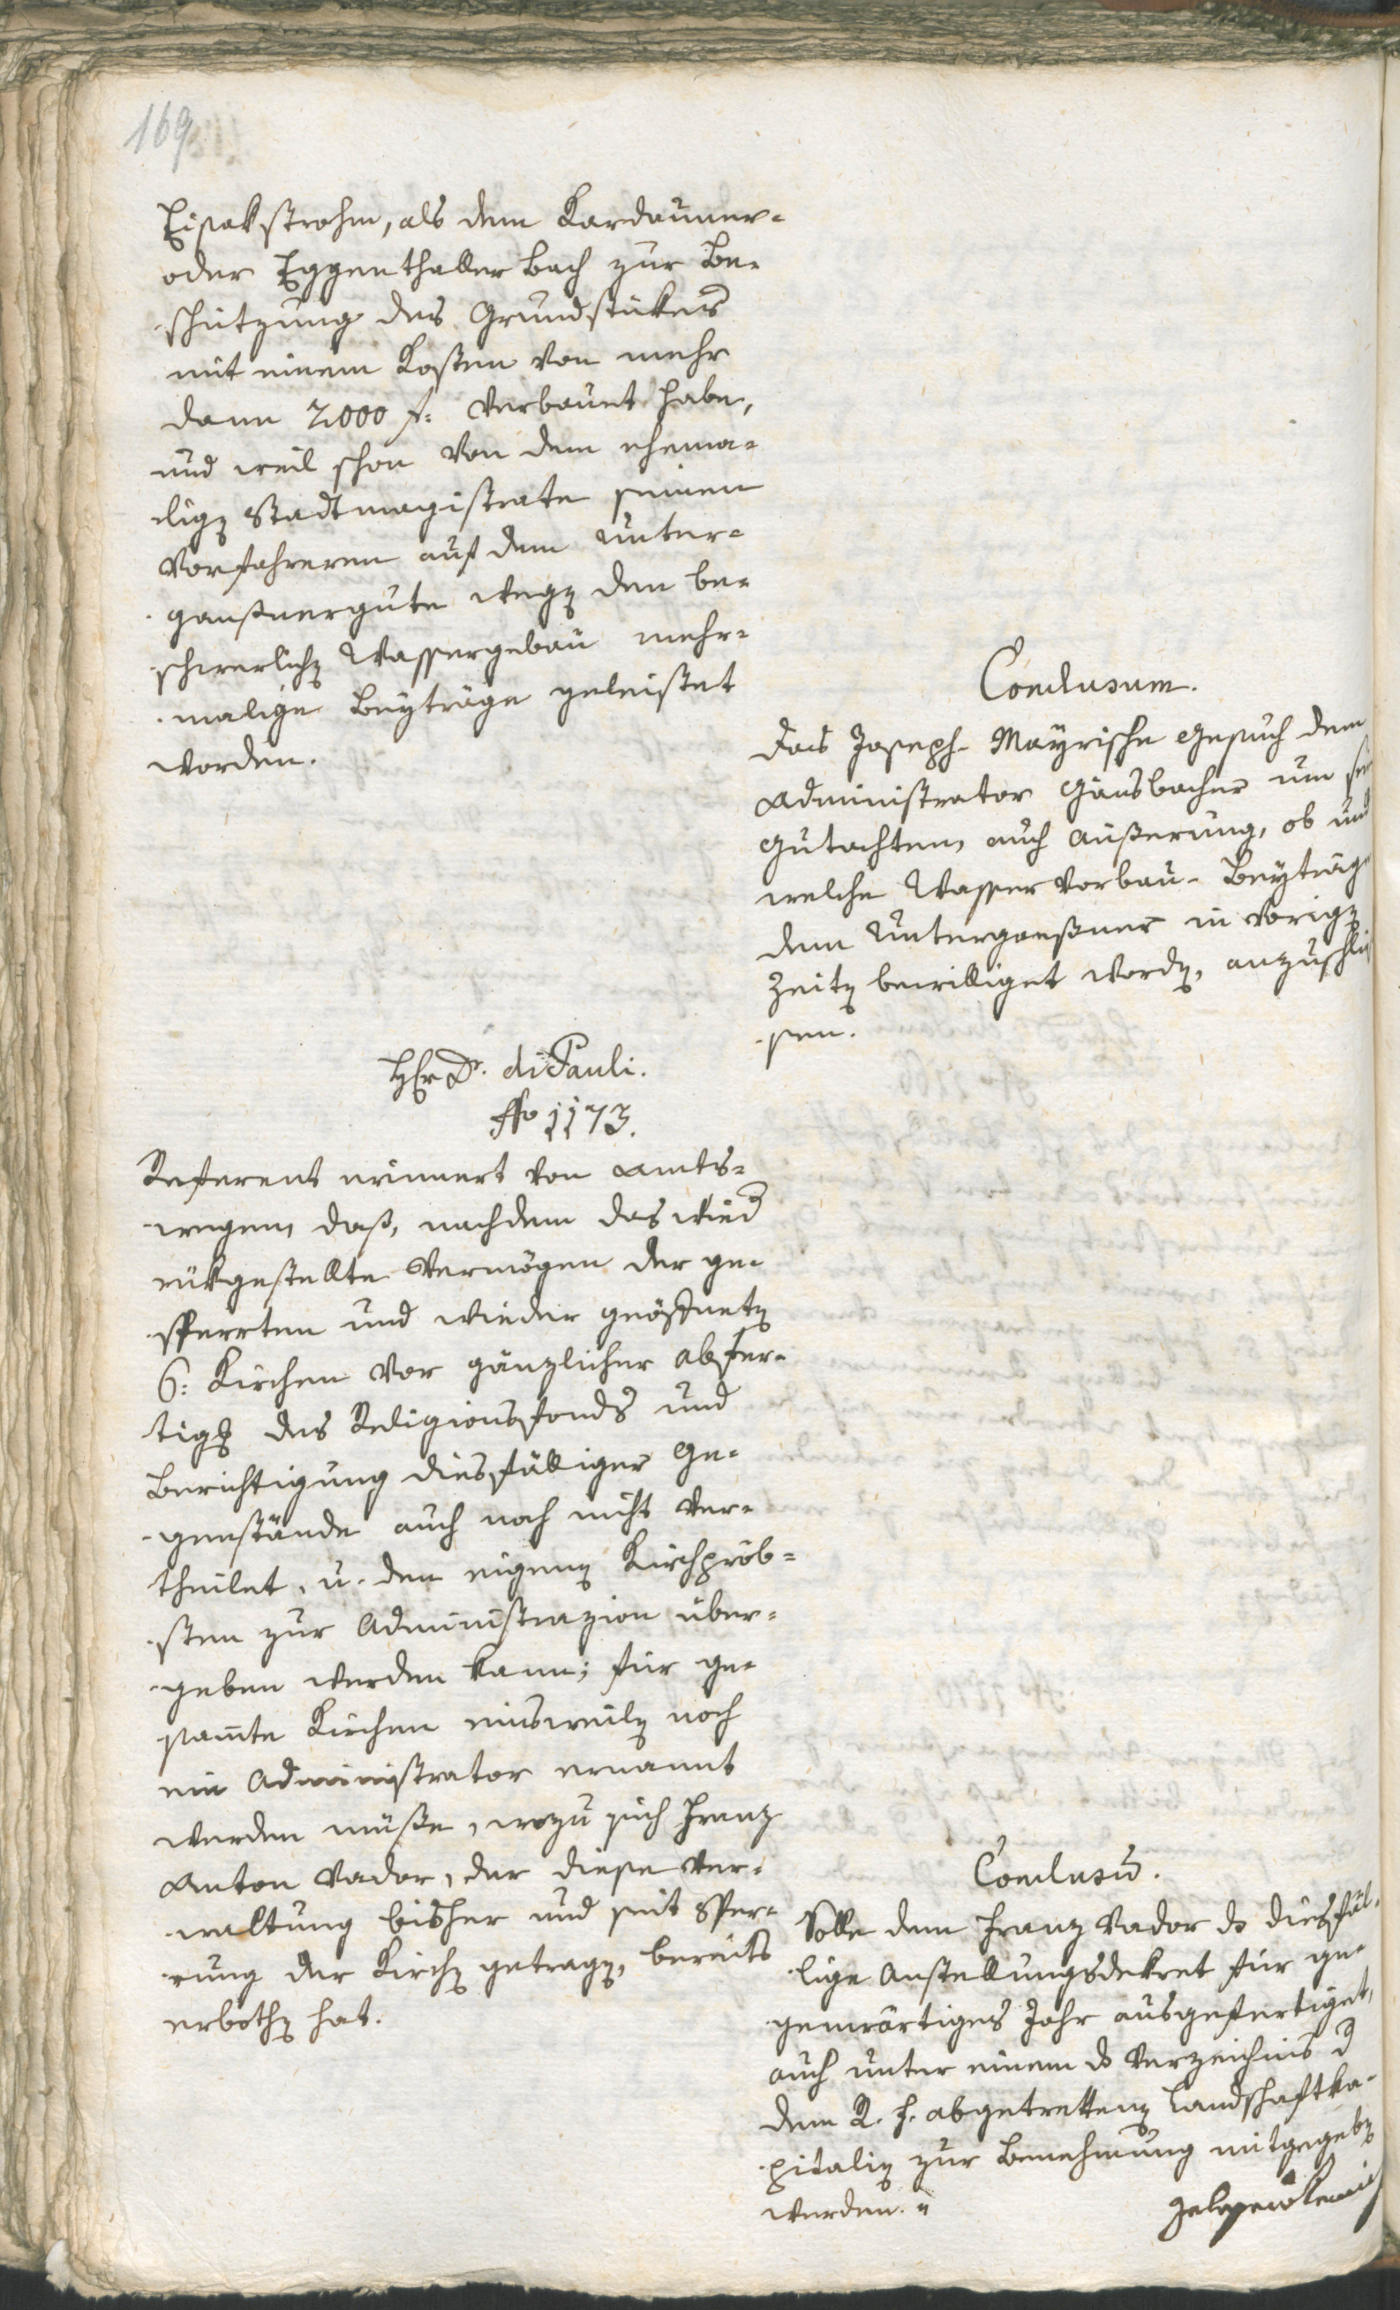 169
Eisakstrohm, als dem Kardauner-
oder Eggenthaller Bach zur Be-
schützung des Grundstükes
mit einem Kosten von mehr
dann 2000 f: verbauet habe,
und weil schon von dem ehema-
ligen Stadtmagistrate seinen
Vorfahreren auf dem Unter-
ganßnergute wegen den be-
schwerlichen Wassergebäu mehr-
malige Beyträge geleistet
worden.
Conclusum.
das Joseph-Mayrische Gesuch dem
Administrator Gänsbacher um sein
Gutachten, auch Äußerung, ob und
welche Wasser Vorbau-Beyträge
dem Unterganßner in vorigen
Zeiten bewilliget worden, anzuschlü-
ßen.
Hr Dr. di Pauli.
No 1173.
Referent erinnert von Amts-
wegen, daß, nachdem das wieder
rükgestellte Vermögen der ge-
sperrten und wieder geöffneten
6: Kirchen vor gänzlicher Abfer-
tigung des Religionsfonds und
Berichtigung diesfälliger Ge-
genstände auch noch nicht ver-
theilet, u. den eigenen Kirchpröb-
sten zur Administrazion über-
geben werden kann; für ge-
samte Kirchen einsweilen noch
ein Administrator ernannt
werden müße, wozu sich Franz
Anton Vador, der diese Ver-
waltung bisher und seit Sper-
rung der Kirchen getragen, bereits
erbothen hat.
Conclusum.
Solle dem Franz Vador das diesfäl-
lige Anstellungsdekret für ge-
genwärtiges Jahr ausgefertiget,
auch unter einem das Verzeichnis der
dem R. F. abgetrettenen Landschaftka-
pitalien zur Benehmung mitgegeben
werden.